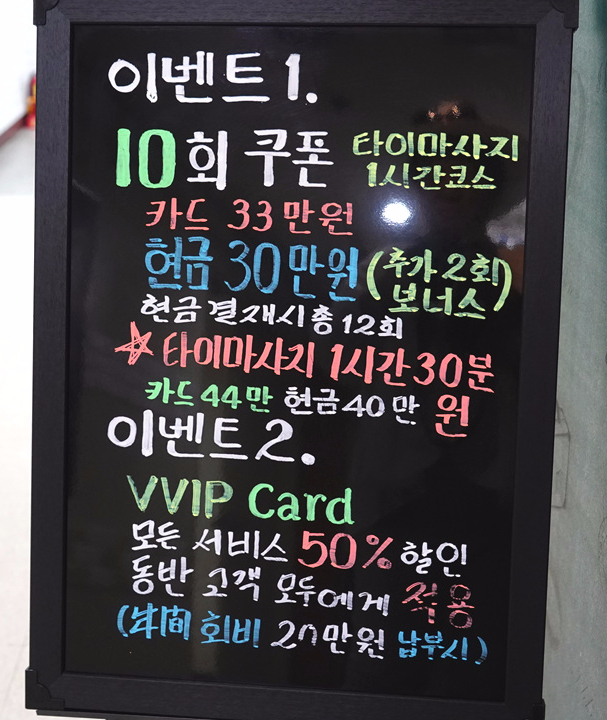 이벤트 1.
10회 쿠폰 타이마사지
1시간코스
카드 33만원
현금 30만원 (추가 2회 보너스)
현금 결재시 총 12회
☆ 타이마사지 1시간 30분
카드 44만 현금 40만 원
이벤트 2.
VVIP Card
모든 서비스 50% 할인
동반 고객 모두에게 적용
(年間 회비 20만원 납부시)